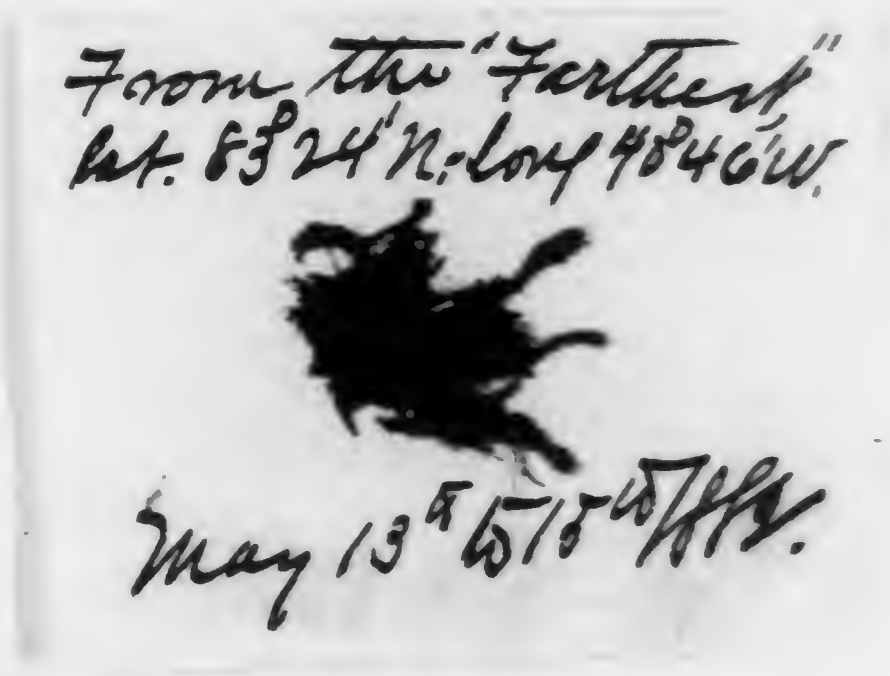 From the "Farthest"
Lat. 83° 24' N. Long 40° 46' W.
May 13th to 15th 1882.